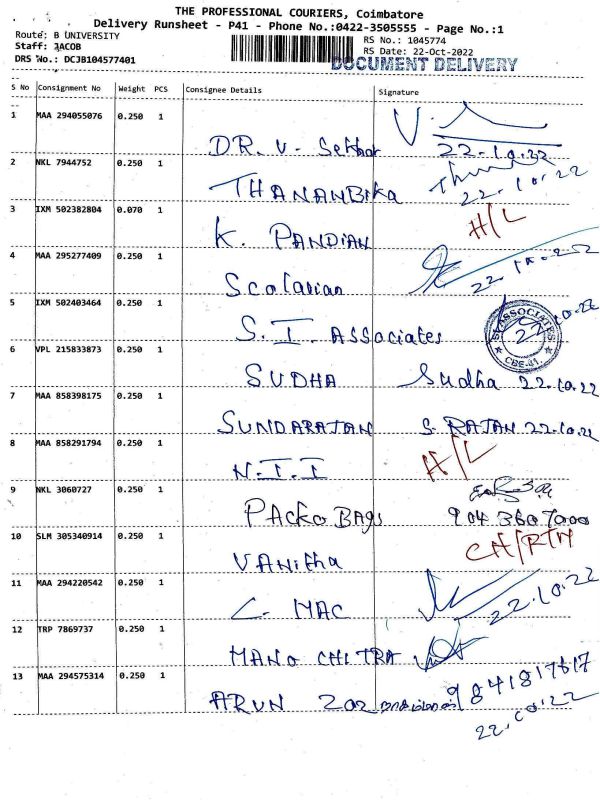 THE PROFESSIONAL COURIERS, Coimbatore
Delivery Runsheet - P41 - Phone No.:0422-3505555 - Page No.:1
Route: B UNIVERSITY
RS No.: 1045774
Staff: JACOB
RS Date: 22-Oct-2022
DRS No.: DCJB104577401
DOCUMENT DELIVERY
S No Consignment No Weight PCS Consignee Details Signature
1 MAA 294055076 0.250 1
DR. V. Sekhar 22.10.22
2 NKL 7944752 0.250 1
THANANBIKA 22.10.22
3 IXM 502382804 0.070 1 H/L
K. PANDIAN
4 MAA 295277409 0.250 1
Scalarian 22.10.22
5 IXM 502403464 0.250 1
S.I. ASSociates S.I. ASSOCIATES CBE-41. 22.10.22
6 VPL 215833873 0.250 1
SUDHA Sudha 22.10.22
7 MAA 858398175 0.250 1
SUNDARAJAN S. RAJAN 22.10.22
8 MAA 858291794 0.250 1 H/L
N.I.I
9 NKL 3060727 0.250 1
PACKO BAgs 904 360 7000
10 SLM 305340914 0.250 1 CH/RTN
VANitha
11 MAA 294220542 0.250 1
C. MAC 22.10.22
12 TRP 7869737 0.250 1
MANO CHITRA
13 MAA 294575314 0.250 1
ARUN 9841817617
22.10.22